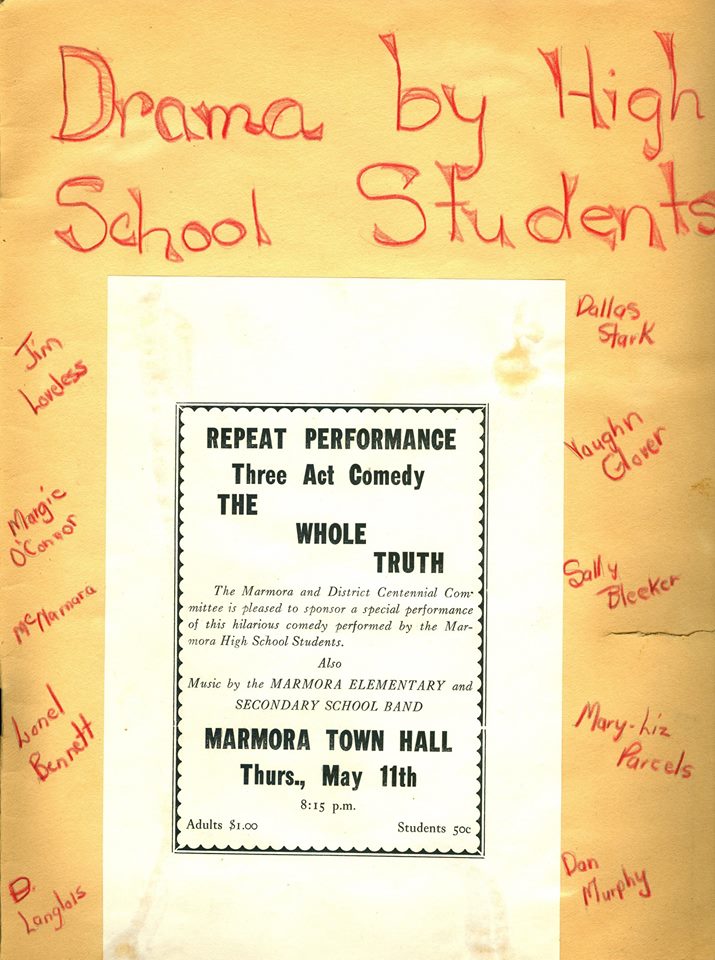 Drama by High
School Students
Jim
Loveless
Margie
O'Connor
McNamara
Lionel
Bennett
D.
Langlois
REPEAT PERFORMANCE
Three Act Comedy
THE
WHOLE
TRUTH
The Marmora and District Centennial Com-
mittee is pleased to sponsor a special performance
of this hilarious comedy performed by the Mar-
mora High School Students.
Also
Music by the MARMORA ELEMENTARY and
SECONDARY SCHOOL BAND
MARMORA TOWN HALL
Thurs., May 11th
8:15 p.m.
Adults $1.00 Students 50c
Dallas
Stark
Vaughn
Glover
Sally
Bleeker
Mary-Liz
Parcels
Dan
Murphy